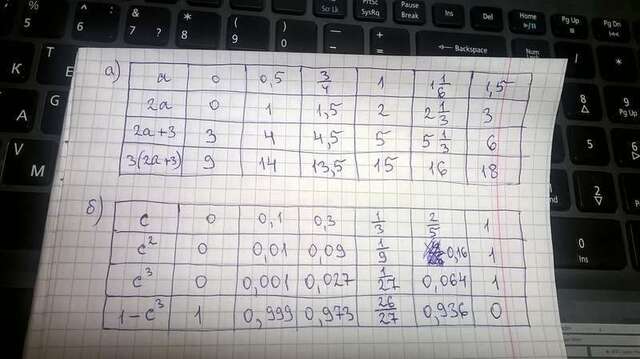 Prtsc SysRq
Pause Break
Ins
Del
Home
Pg Up
Backspace
а) a 0 0,5 3/4 1 1 1/6 1,5
2a 0 1 1,5 2 2 1/3 3
2a+3 3 4 4,5 5 5 1/3 6
3(2a+3) 9 14 13,5 15 16 18
б) c 0 0,1 0,3 1/3 2/5 1
c² 0 0,01 0,09 1/9 0,16 1
c³ 0 0,001 0,027 1/27 0,064 1
1-c³ 1 0,999 0,973 26/27 0,936 0